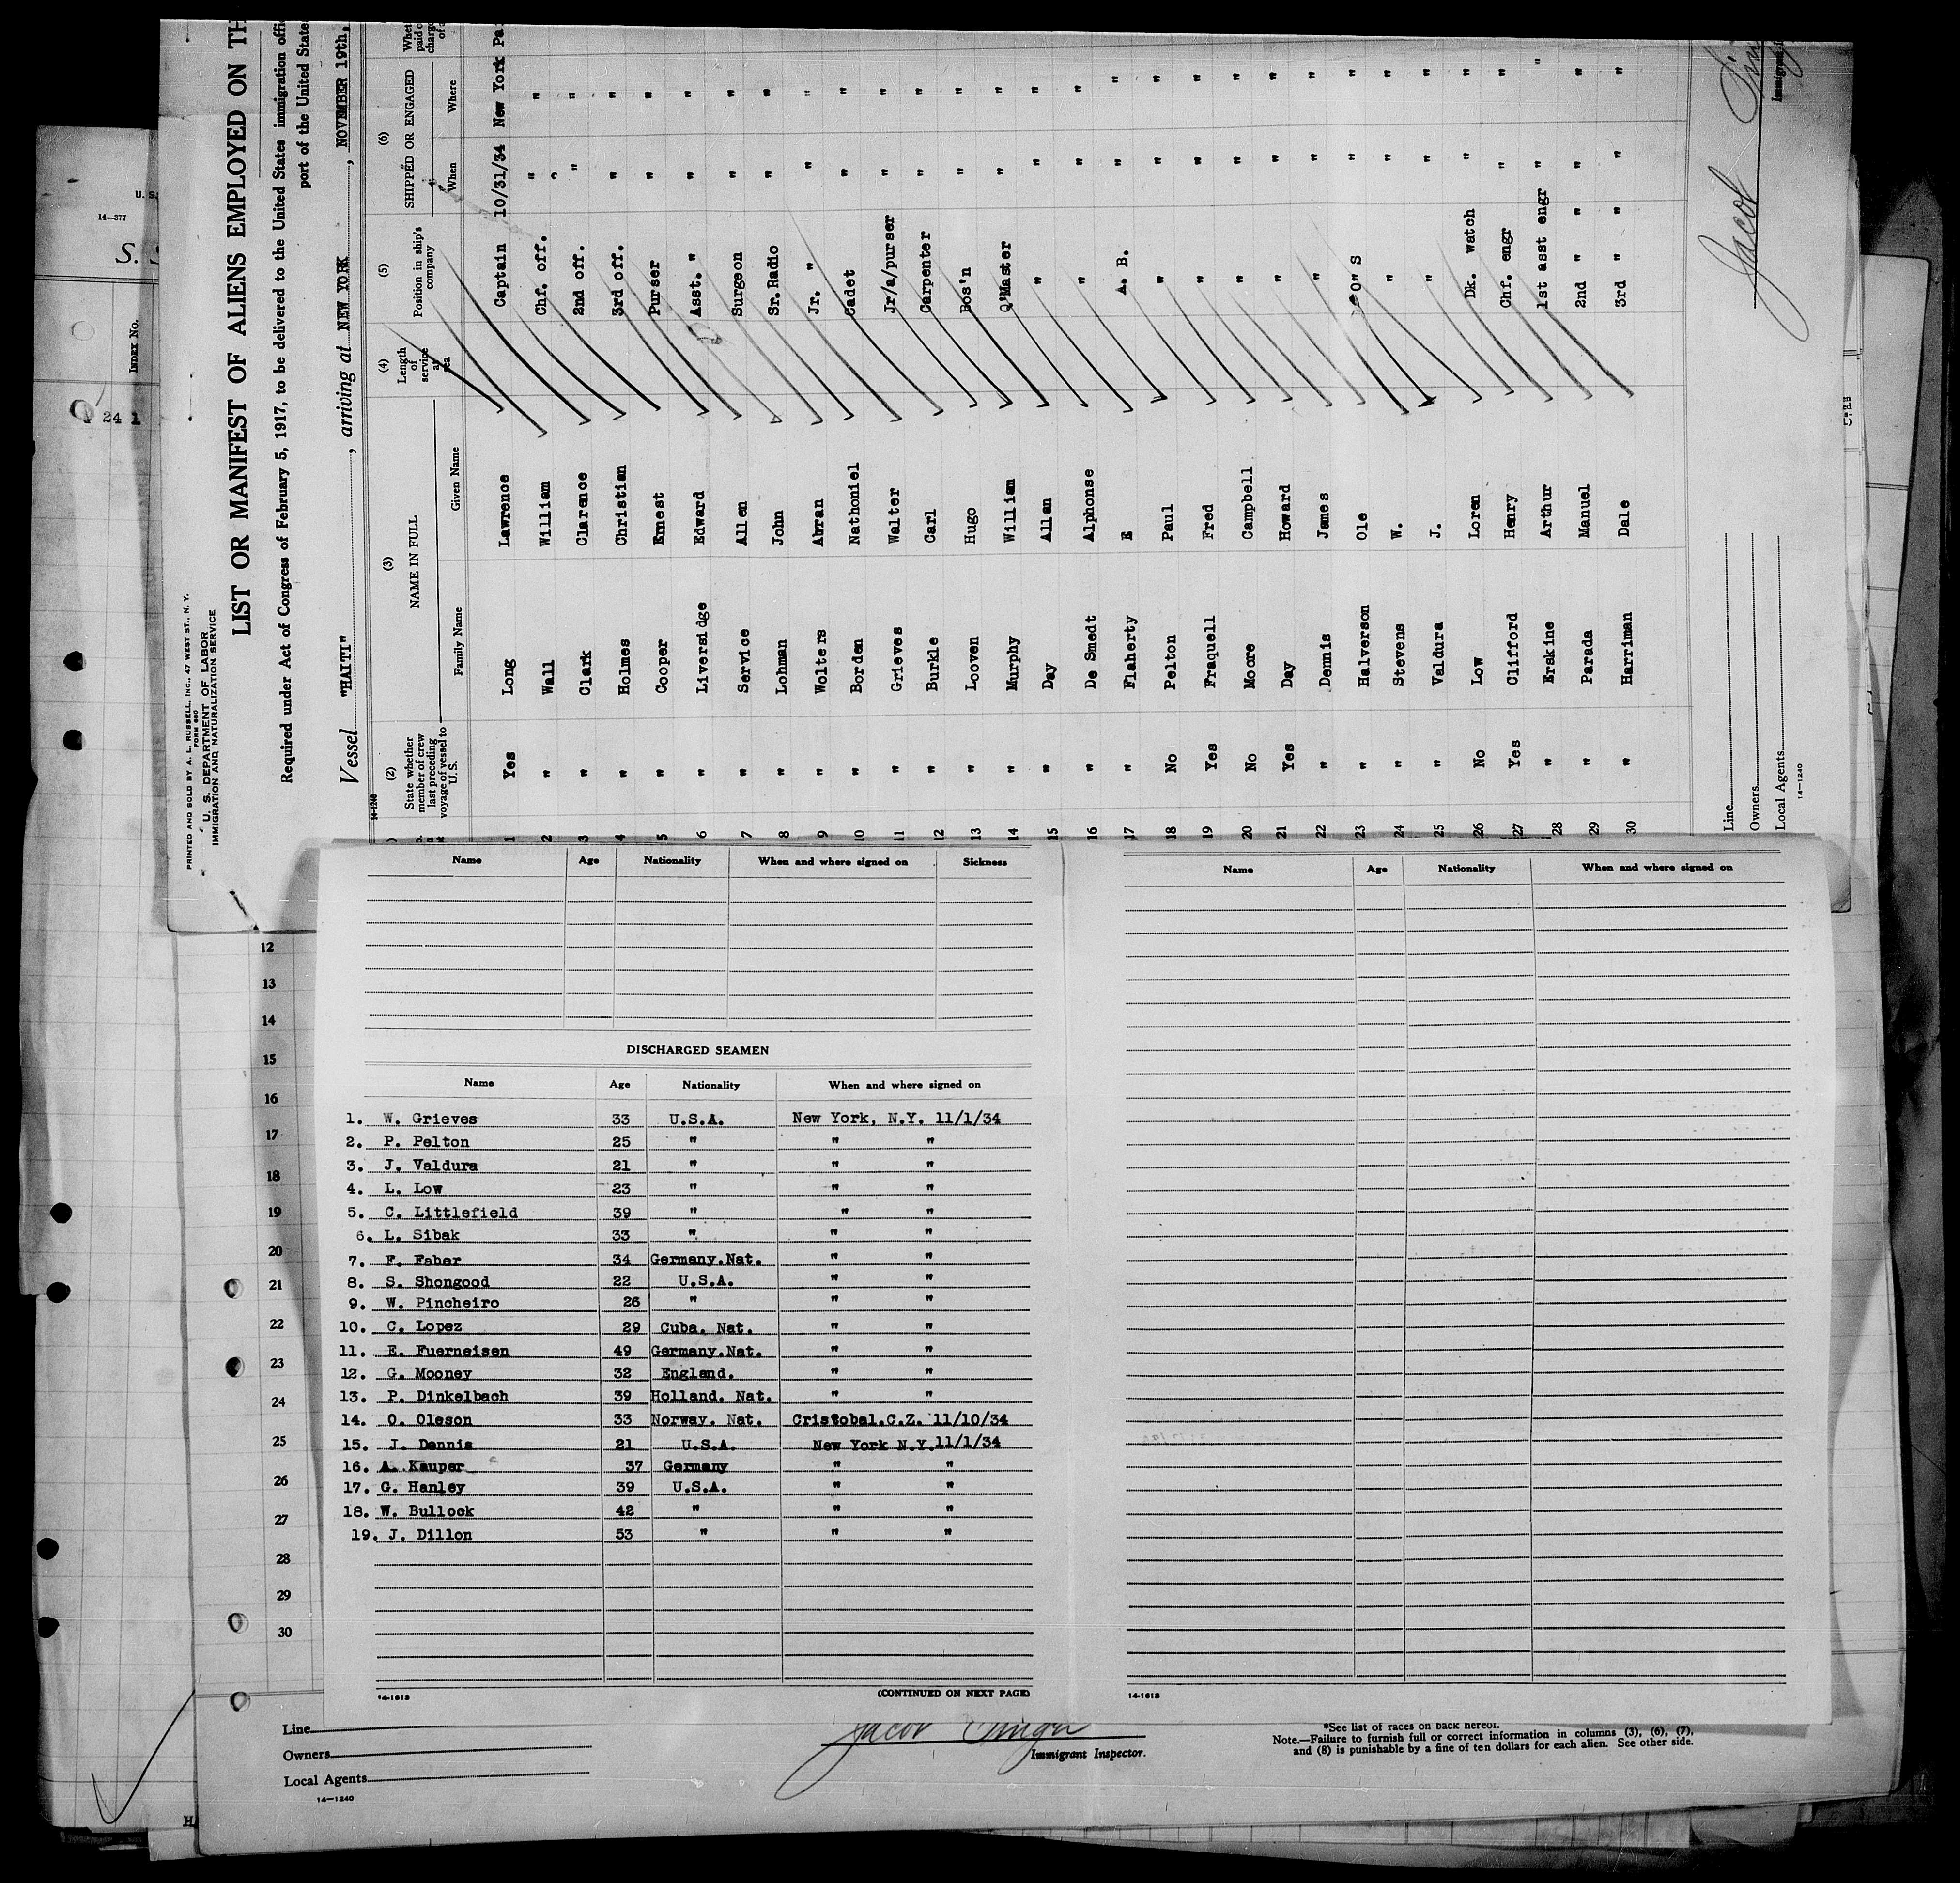 PRINTED AND SOLD BY A. L. RUSSELL, INC., 47 WEST ST., N. Y.
FORM 680
U. S. DEPARTMENT OF LABOR
IMMIGRATION AND NATURALIZATION SERVICE
LIST OR MANIFEST OF ALIENS EMPLOYED ON TH
Required under Act of Congress of February 5, 1917, to be delivered to the United States immigration offi
port of the United State
Vessel "HAITI", arriving at NEW YORK, NOVEMBER 19th,
14-1240
(2) (3) (4) (5) (6)
State whether member of crew last preceding voyage of vessel to U. S. NAME IN FULL Length of service at sea Position in ship's company SHIPPED OR ENGAGED
Family Name Given Name When Where
1 Yes Long Lawrence Captain 10/31/34 New York Pa
2 " Wall William Chf. off. " "
3 " Clark Clarence 2nd off. " "
4 " Holmes Christian 3rd off. " "
5 " Cooper Ernest Purser " "
6 " Liversidge Edward Asst. " " "
7 " Service Allen Surgeon " "
8 " Lohman John Sr.Radio " "
9 " Wolters Abran Jr. " " "
10 " Borden Nathoniel Cadet " "
11 " Grieves Walter Jr/a/purser " "
12 " Burkle Carl Carpenter " "
13 " Looven Hugo Bos'n " "
14 " Murphy William Q'Master " "
15 " Day Allan " " "
16 " De Smedt Alphonse " " "
17 " Flaherty E A. B. " "
18 No Pelton Paul " " "
19 Yes Fraquell Fred " " "
20 No Moore Campbell " " "
21 Yes Day Howard " " "
22 " Dennis James " " "
23 " Halverson Ole "O" S " "
24 " Stevens W. " " "
25 " Valdura J. " " "
26 No Low Loren Dk. watch " "
27 Yes Clifford Henry Chf. engr " "
28 " Erskine Arthur 1st asst engr " "
29 " Parada Manuel 2nd " " " "
30 " Harriman Dale 3rd " " " "
Line
Owners
Local Agents
14-1240
Jacob
U. S.
14-377
S. S
INDEX No.
24 1
12
13
14
15
16
17
18
19
20
21
22
23
24
25
26
27
28
29
30
Name Age Nationality When and where signed on Sickness
DISCHARGED SEAMEN
Name Age Nationality When and where signed on
1. W. Grieves 33 U.S.A. New York, N.Y. 11/1/34
2. P. Pelton 25 " " "
3. J. Valdura 21 " " "
4. L. Low 23 " " "
5. C. Littlefield 39 " " "
6. L. Sibak 33 " " "
7. F. Faber 34 Germany.Nat. " "
8. S. Shongood 22 U.S.A. " "
9. W. Pincheiro 26 " " "
10. C. Lopez 29 Cuba. Nat. " "
11. E. Fuerneisen 49 Germany.Nat. " "
12. G. Mooney 32 England. " "
13. P. Dinkelbach 39 Holland. Nat. " "
14. O. Oleson 33 Norway. Nat. Cristobal.C.Z. 11/10/34
15. J. Dennis 21 U.S.A. New York N.Y.11/1/34
16. A. Kauper 37 Germany " "
17. G. Hanley 39 U.S.A. " "
18. W. Bullock 42 " " "
19. J. Dillon 53 " " "
14-1613
(CONTINUED ON NEXT PAGE)
Name Age Nationality When and where signed on
14-1613
Line
Owners
Local Agents
14-1240
Jacob
Immigrant Inspector.
*See list of races on back hereof.
Note.—Failure to furnish full or correct information in columns (3), (6), (7),
and (8) is punishable by a fine of ten dollars for each alien. See other side.